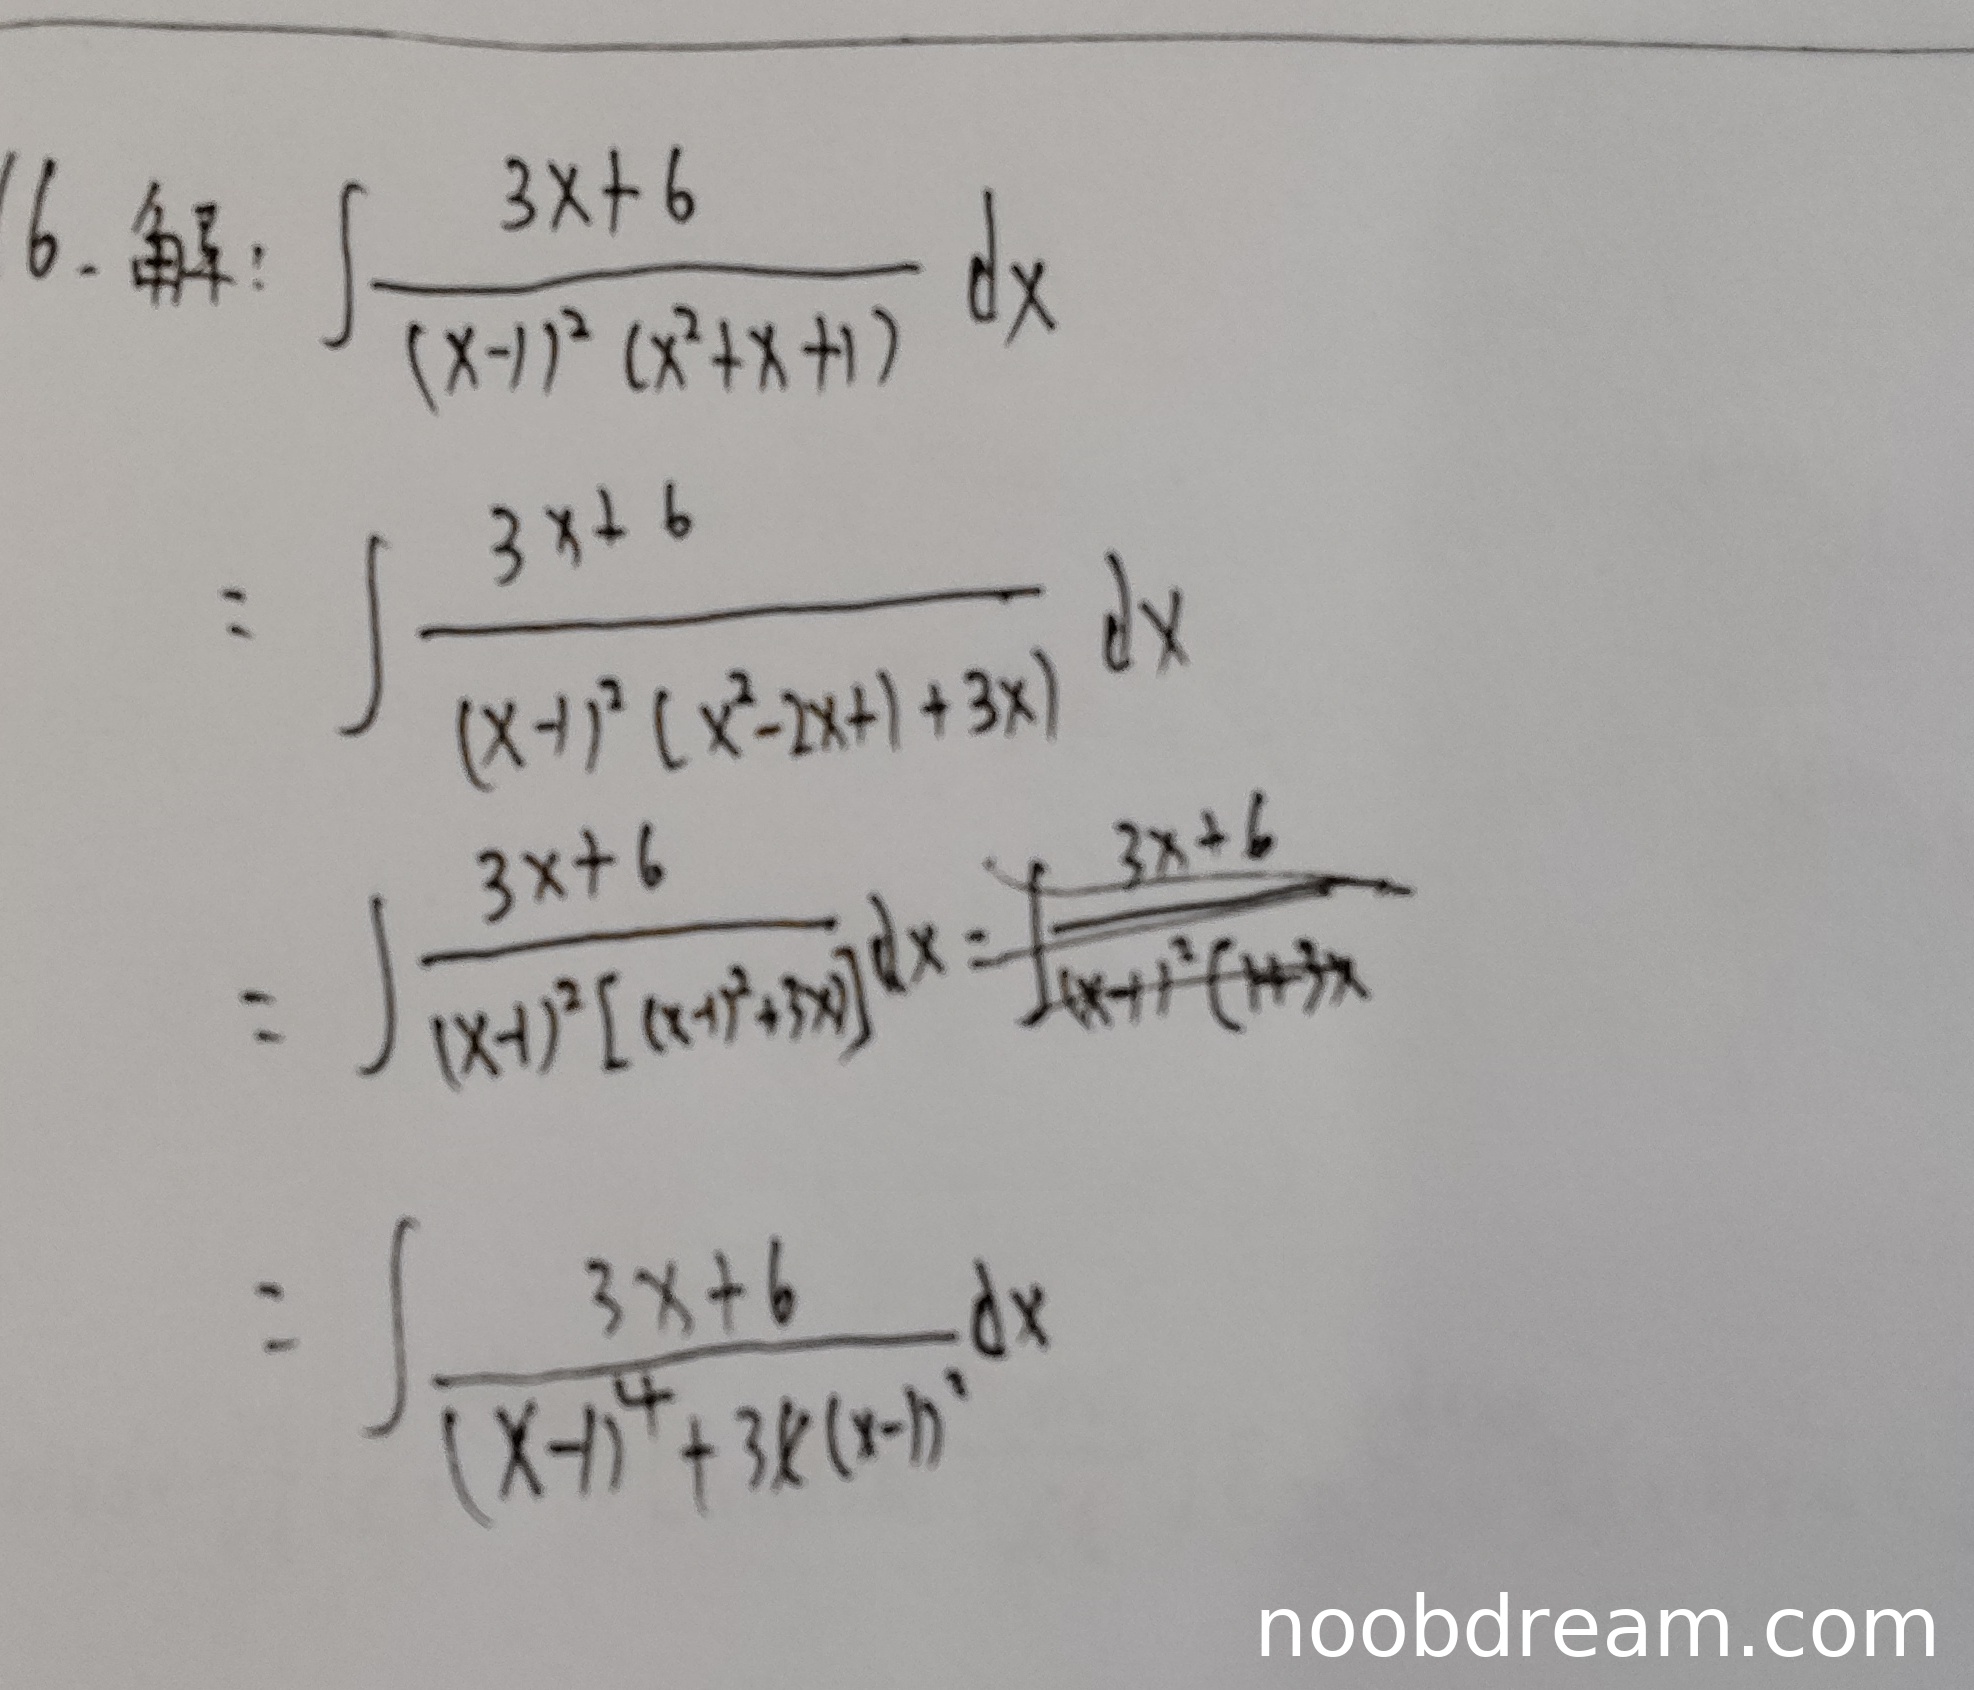 16. 解: ∫ (3x+6)/((x-1)²(x²+x+1)) dx
= ∫ (3x+6)/((x-1)²(x²-2x+1+3x)) dx
= ∫ (3x+6)/((x-1)²[(x-1)²+3x)]) dx = ∫ (3x+6)/((x-1)²(1+3x
= ∫ (3x+6)/((x-1)⁴+3x(x-1)²) dx
noobdream.com